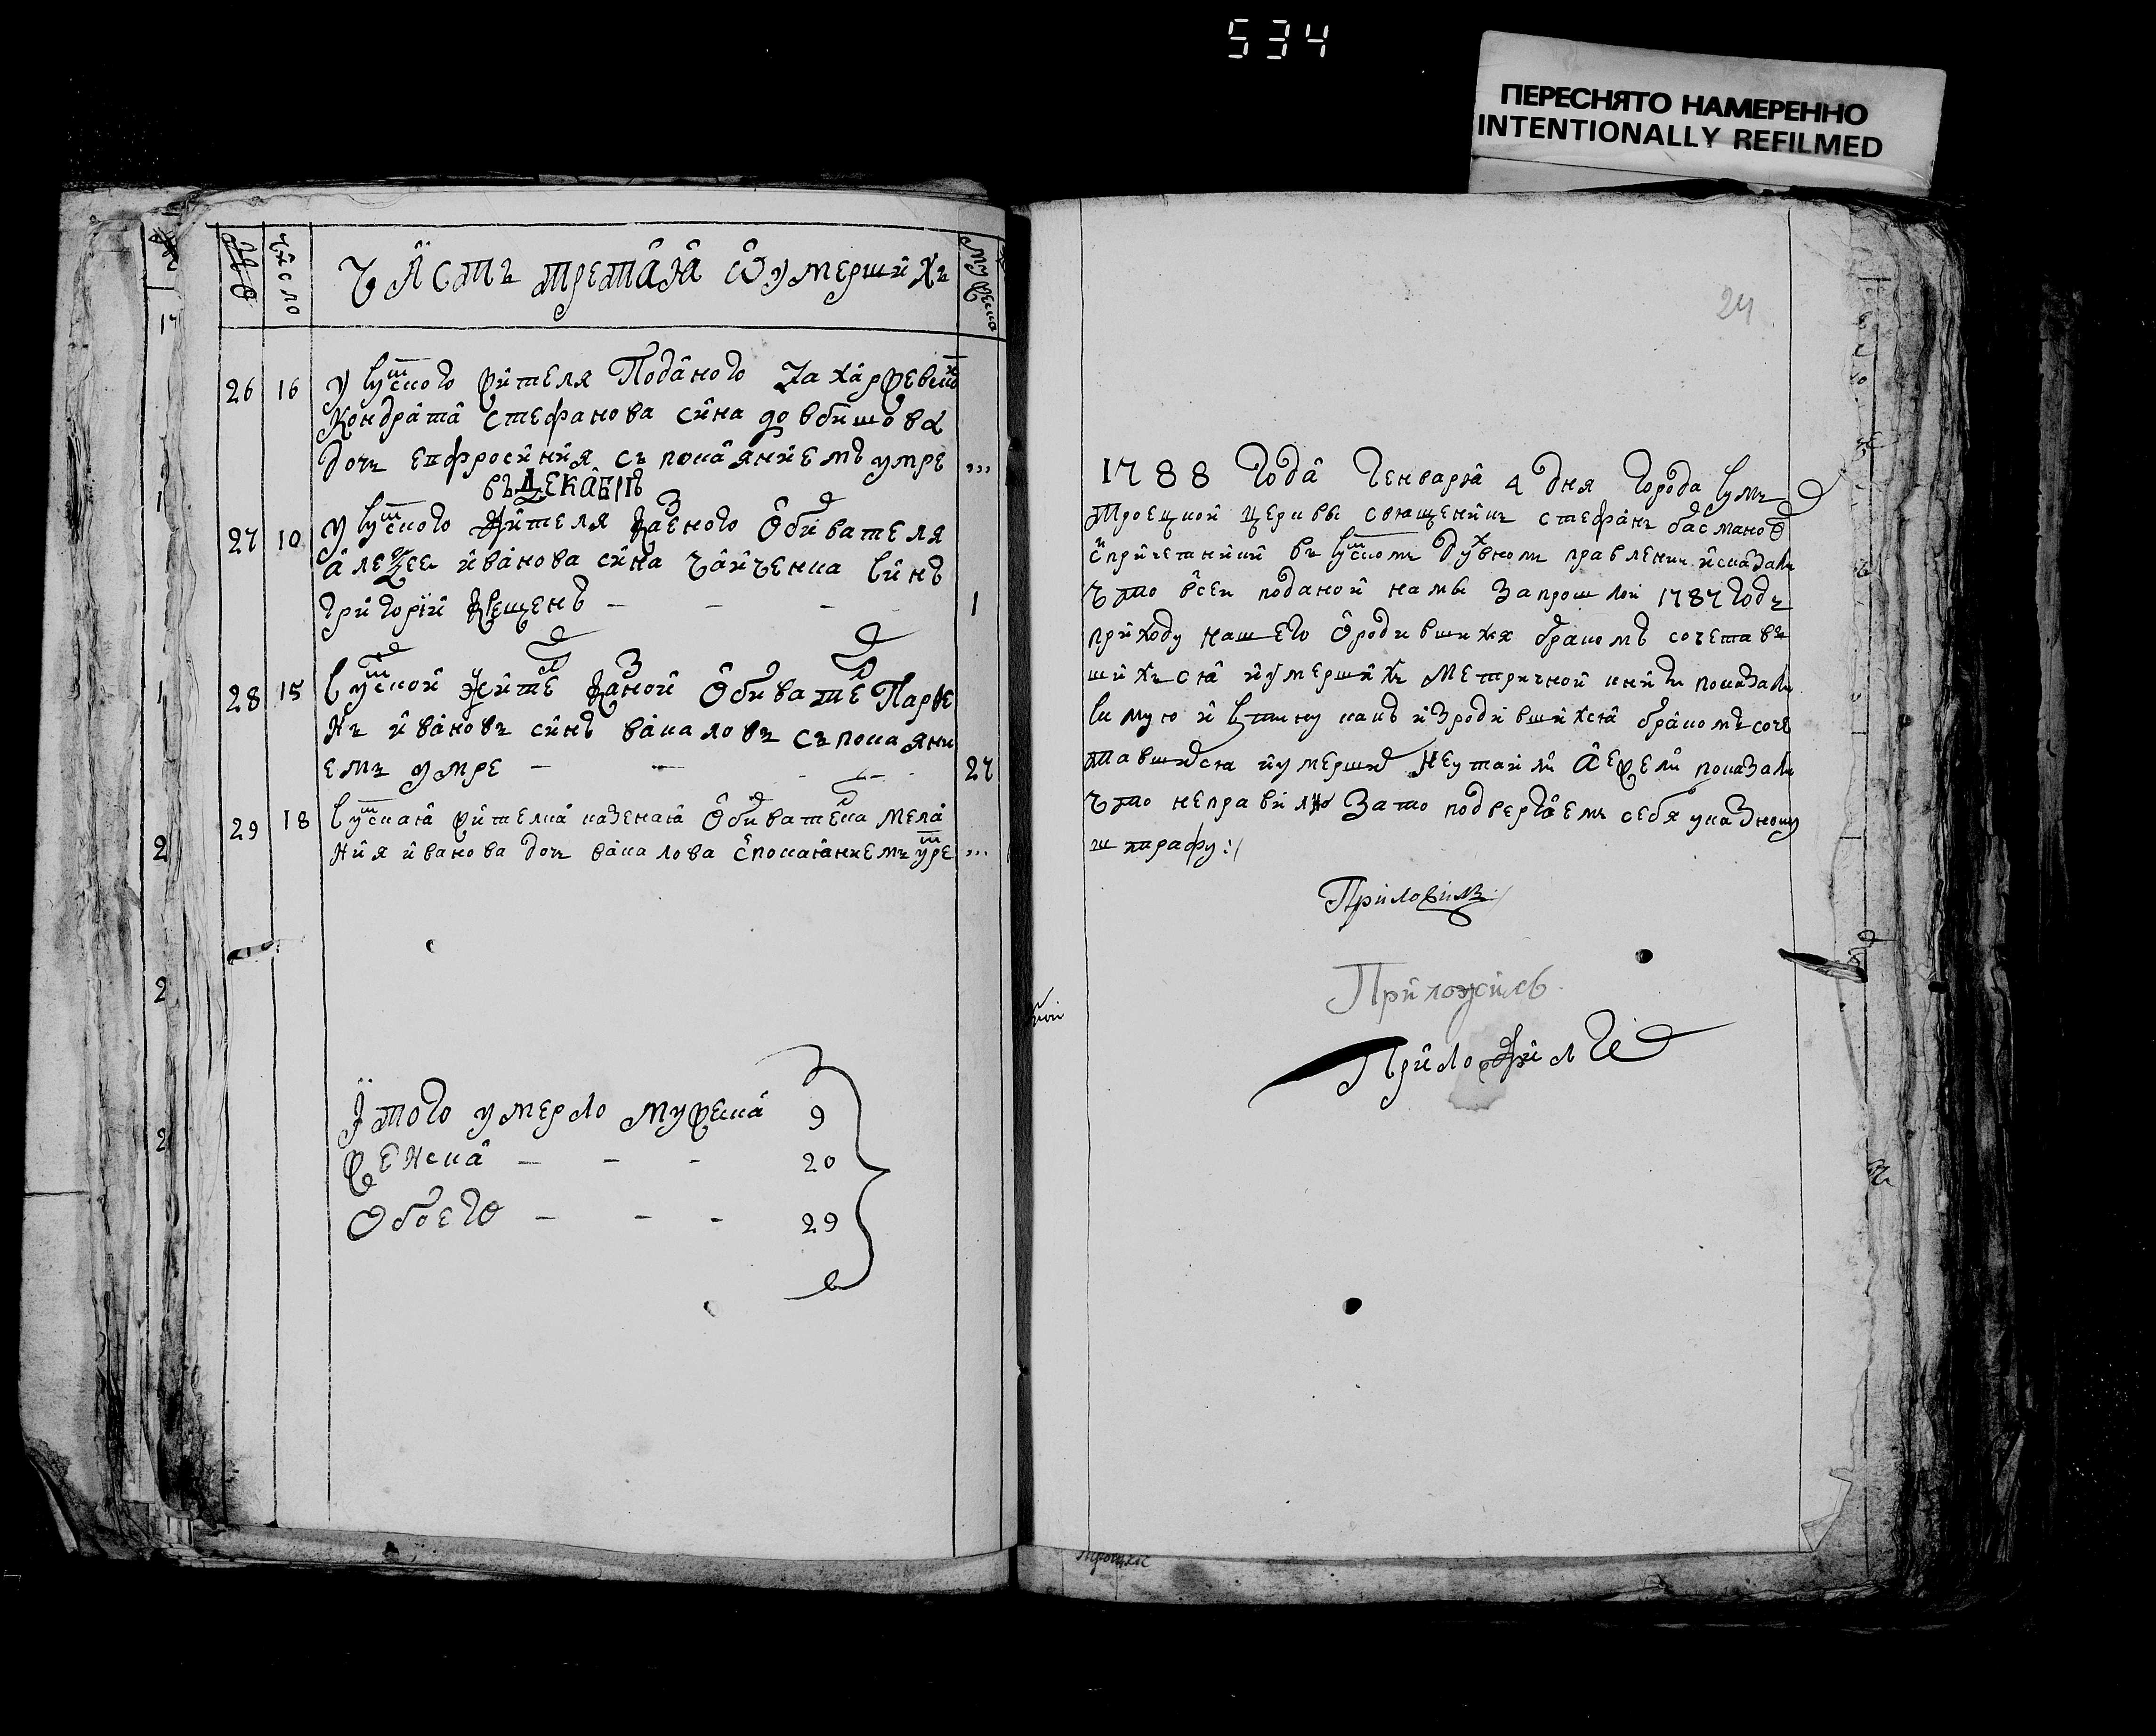 534
ПЕРЕСНЯТО НАМЕРЕННО
INTENTIONALLY REFILMED
число
Часть третая о умершихъ
муж
24
26 16 У сумского жителя поданого Захаржевско
Кондрата Стефанова сина довбишова
дочь Епфросиния съ покаяниемъ умре ,,,
въ Декабръ
27 10 У сумского жителя казеного обивателя
Алеѯея иванова сина чайченка синъ
Григорий крещенъ - - - - 1
28 15 Сумской жите казной обивате Парѳе
нъ ивановъ синъ вакаловъ съ покаяни
емъ умре - - - - 27
29 18 Сумская жителка казеная обивате́ка Мела
ния иванова дочь вакалова с покаяниемъ умре ,,,
Ітого умерло мужеска 9
женска - - - 20
обоего - - - 29
1788 года генваря 4 дня города Сумъ
Троецкой церкви священикъ Стефанъ басмано
с причетники въ сумскомъ духвномъ правлении исказали
что въсеи поданой нами за прошлой 1787 годъ
приходу нашего о родившихся бракомъ сочетавъ
шихъ ся и умершихъ метричной книги показали
самую истину какъ из родившихся бракомъ соче
тавшихся и умерших не утаили а ежели показали
что неправилно за то подвергаемъ себя указному
штрафу:/
Приложилъ
Приложись
Приложил